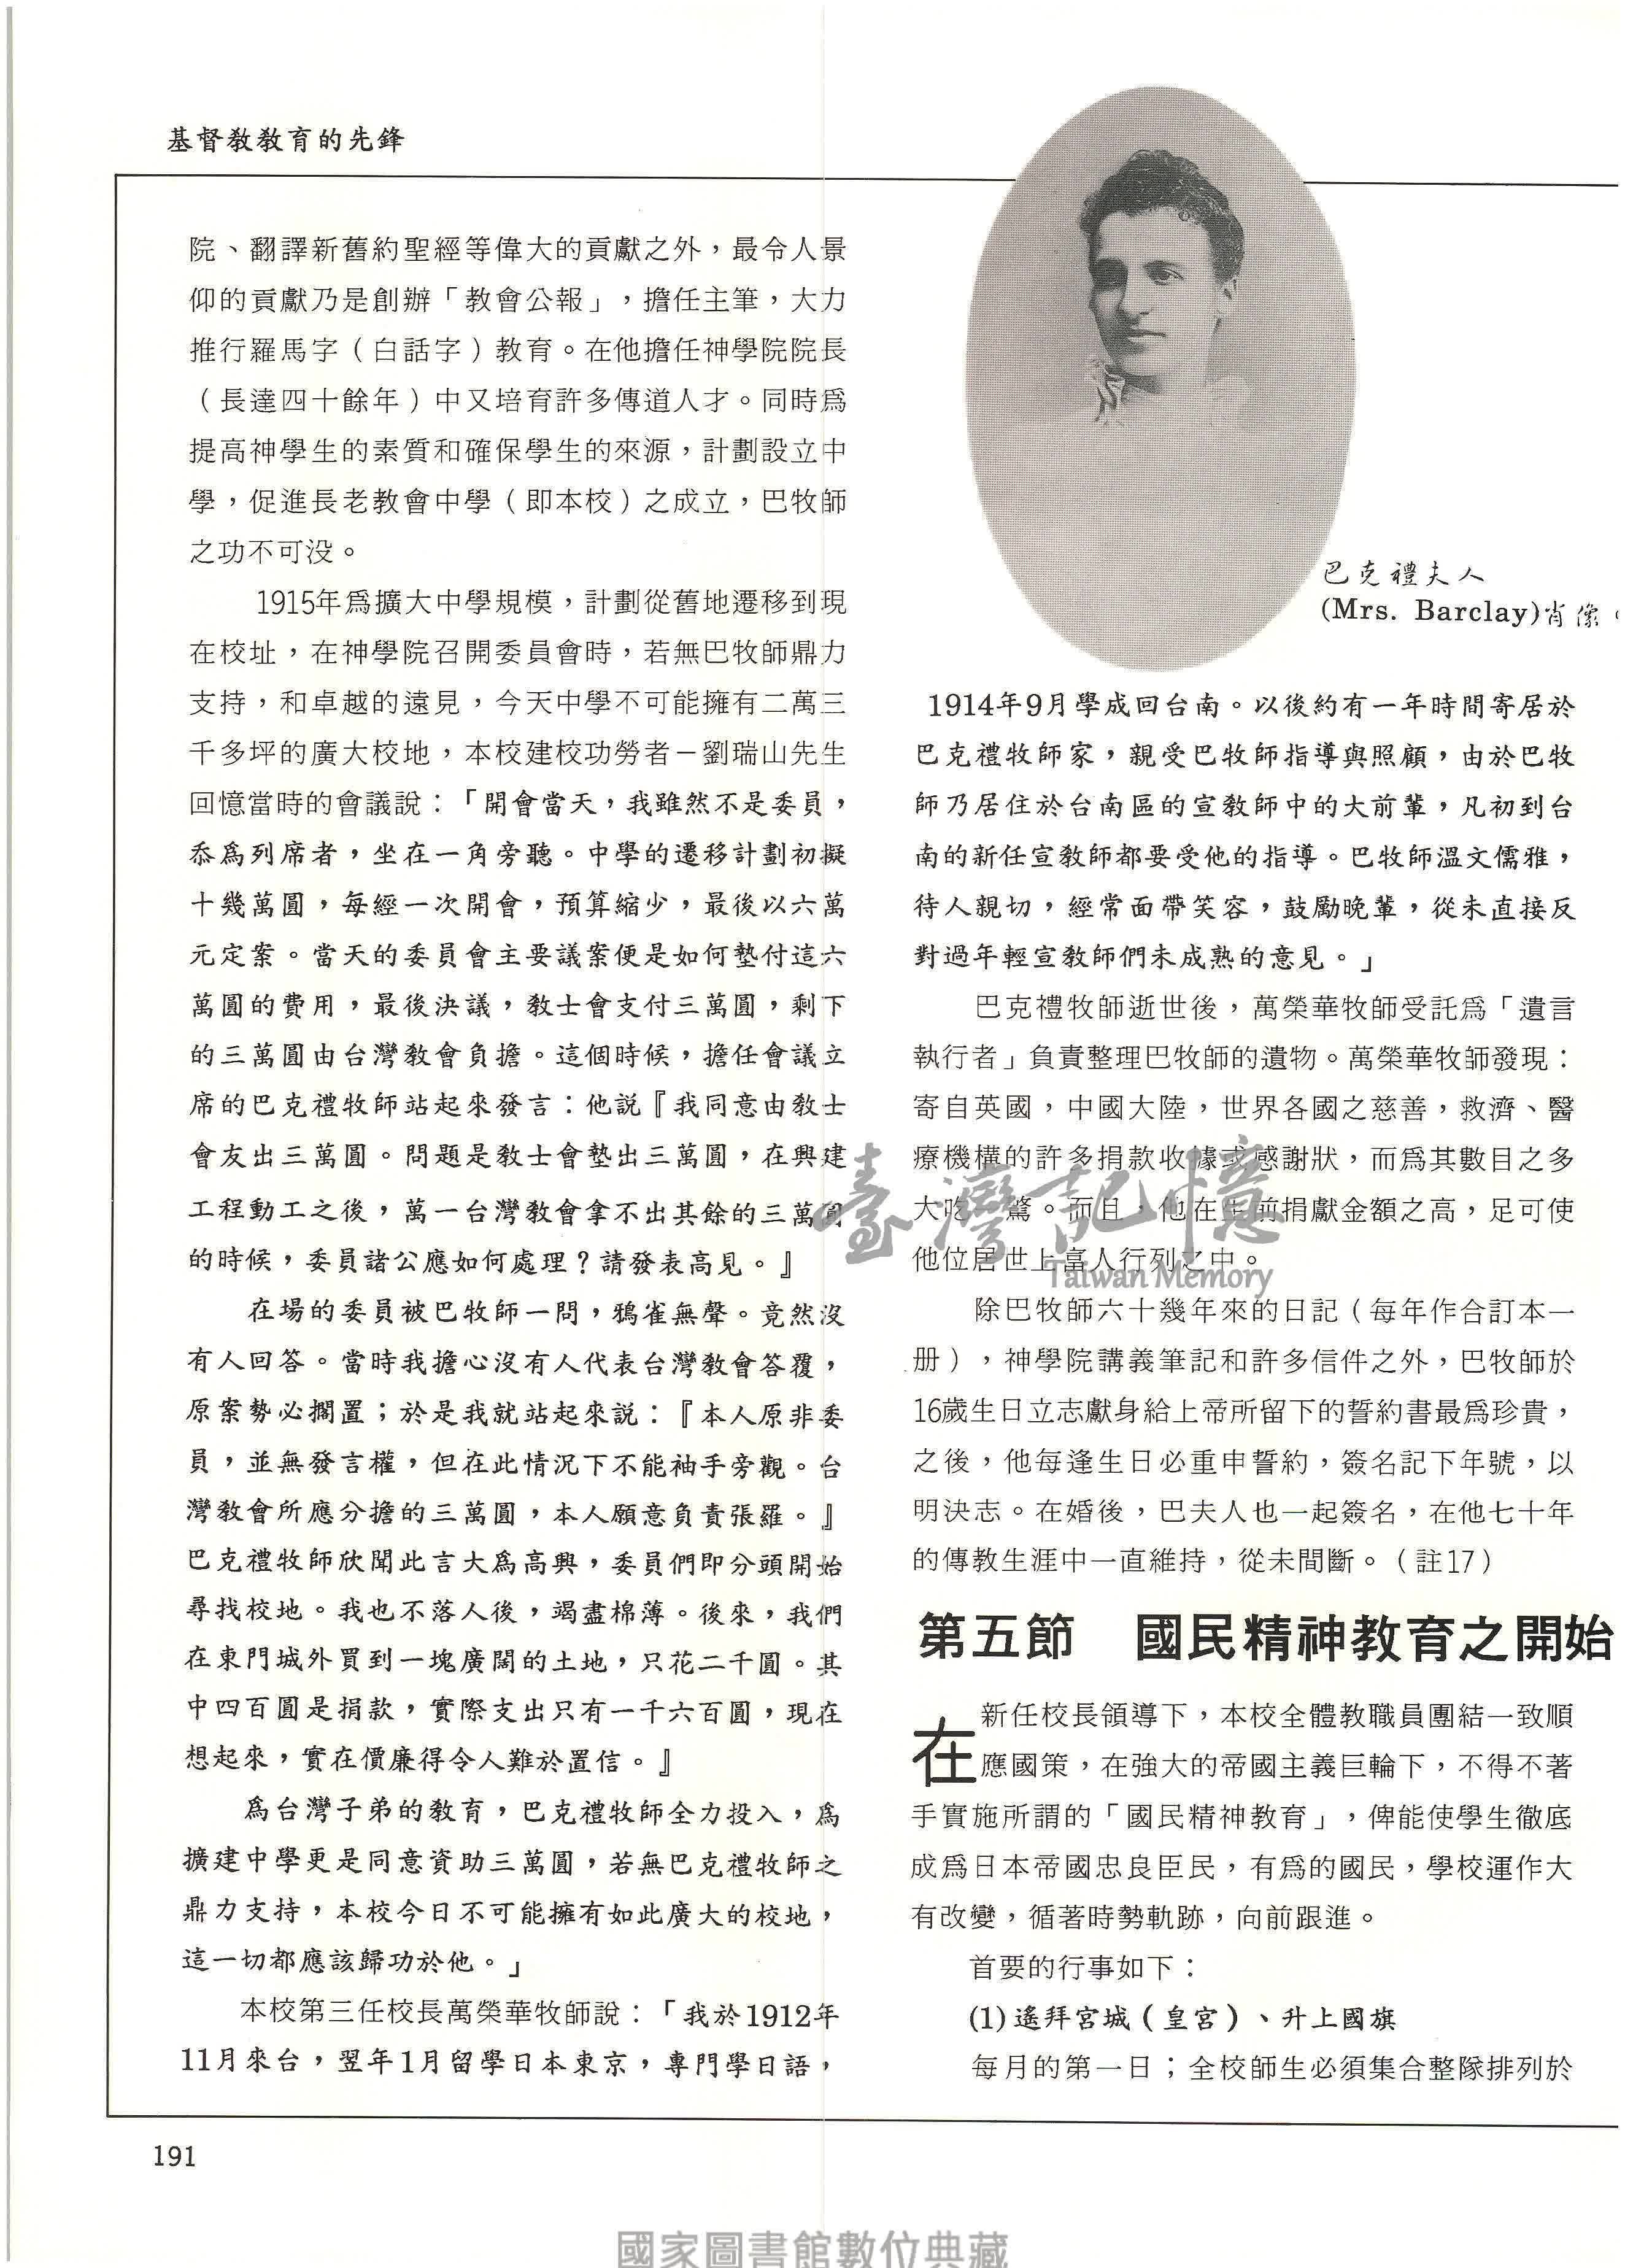 基督教教育的先鋒
院、翻譯新舊約聖經等偉大的貢獻之外，最令人景
仰的貢獻乃是創辦「教會公報」，擔任主筆，大力
推行羅馬字（白話字）教育。在他擔任神學院院長
（長達四十餘年）中又培育許多傳道人才。同時爲
提高神學生的素質和確保學生的來源，計劃設立中
學，促進長老教會中學（即本校）之成立，巴牧師
之功不可没。
1915年爲擴大中學規模，計劃從舊地遷移到現
在校址，在神學院召開委員會時，若無巴牧師鼎力
支持，和卓越的遠見，今天中學不可能擁有二萬三
千多坪的廣大校地，本校建校功勞者－劉瑞山先生
回憶當時的會議說：「開會當天，我雖然不是委員，
忝爲列席者，坐在一角旁聽。中學的遷移計劃初擬
十幾萬圓，每經一次開會，預算縮少，最後以六萬
元定案。當天的委員會主要議案便是如何墊付這六
萬圓的費用，最後決議，教士會支付三萬圓，剩下
的三萬圓由台灣教會負擔。這個時候，擔任會議立
席的巴克禮牧師站起來發言：他說『我同意由教士
會友出三萬圓。問題是教士會墊出三萬圓，在興建
工程動工之後，萬一台灣教會拿不出其餘的三萬圓
的時候，委員諸公應如何處理？請發表高見。』
在場的委員被巴牧師一問，鴉雀無聲。竟然沒
有人回答。當時我擔心沒有人代表台灣教會答覆，
原案勢必擱置；於是我就站起來說：『本人原非委
員，並無發言權，但在此情況下不能袖手旁觀。台
灣教會所應分擔的三萬圓，本人願意負責張羅。』
巴克禮牧師欣聞此言大爲高興，委員們即分頭開始
尋找校地。我也不落人後，竭盡棉薄。後來，我們
在東門城外買到一塊廣闊的土地，只花二千圓。其
中四百圓是捐款，實際支出只有一千六百圓，現在
想起來，實在價廉得令人難於置信。』
爲台灣子弟的教育，巴克禮牧師全力投入，爲
擴建中學更是同意資助三萬圓，若無巴克禮牧師之
鼎力支持，本校今日不可能擁有如此廣大的校地，
這一切都應該歸功於他。」
本校第三任校長萬榮華牧師說：「我於1912年
11月來台，翌年1月留學日本東京，專門學日語，
巴克禮夫人
(Mrs. Barclay)肖像
1914年9月學成回台南。以後約有一年時間寄居於
巴克禮牧師家，親受巴牧師指導與照顧，由於巴牧
師乃居住於台南區的宣教師中的大前輩，凡初到台
南的新任宣教師都要受他的指導。巴牧師溫文儒雅，
待人親切，經常面帶笑容，鼓勵晚輩，從未直接反
對過年輕宣教師們未成熟的意見。」
巴克禮牧師逝世後，萬榮華牧師受託爲「遺言
執行者」負責整理巴牧師的遺物。萬榮華牧師發現：
寄自英國，中國大陸，世界各國之慈善，救濟、醫
療機構的許多捐款收據或感謝狀，而爲其數目之多
大吃一驚。而且，他在生前捐獻金額之高，足可使
他位居世上富人行列之中。
除巴牧師六十幾年來的日記（每年作合訂本一
册），神學院講義筆記和許多信件之外，巴牧師於
16歲生日立志獻身給上帝所留下的誓約書最爲珍貴，
之後，他每逢生日必重申誓約，簽名記下年號，以
明決志。在婚後，巴夫人也一起簽名，在他七十年
的傳教生涯中一直維持，從未間斷。（註17）
第五節　國民精神教育之開始
在新任校長領導下，本校全體教職員團結一致順
應國策，在強大的帝國主義巨輪下，不得不著
手實施所謂的「國民精神教育」，俾能使學生徹底
成爲日本帝國忠良臣民，有爲的國民，學校運作大
有改變，循著時勢軌跡，向前跟進。
首要的行事如下：
(1)遙拜宮城（皇宮）、升上國旗
每月的第一日；全校師生必須集合整隊排列於
191
臺灣記憶
Taiwan Memory
國家圖書館數位典藏